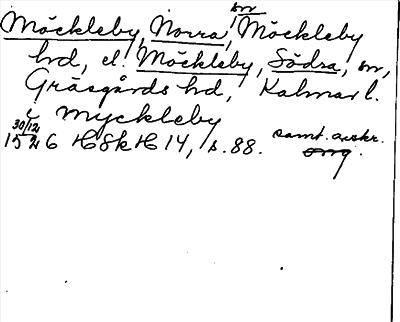 Möckleby, Norra, sn, Möckleby
hd, el. Möckleby, Södra, sn,
Gräsgårds hd, Kalmar l.
i Myckleby
30/12
1526 HSkH 14, s. 88. samt. avskr.